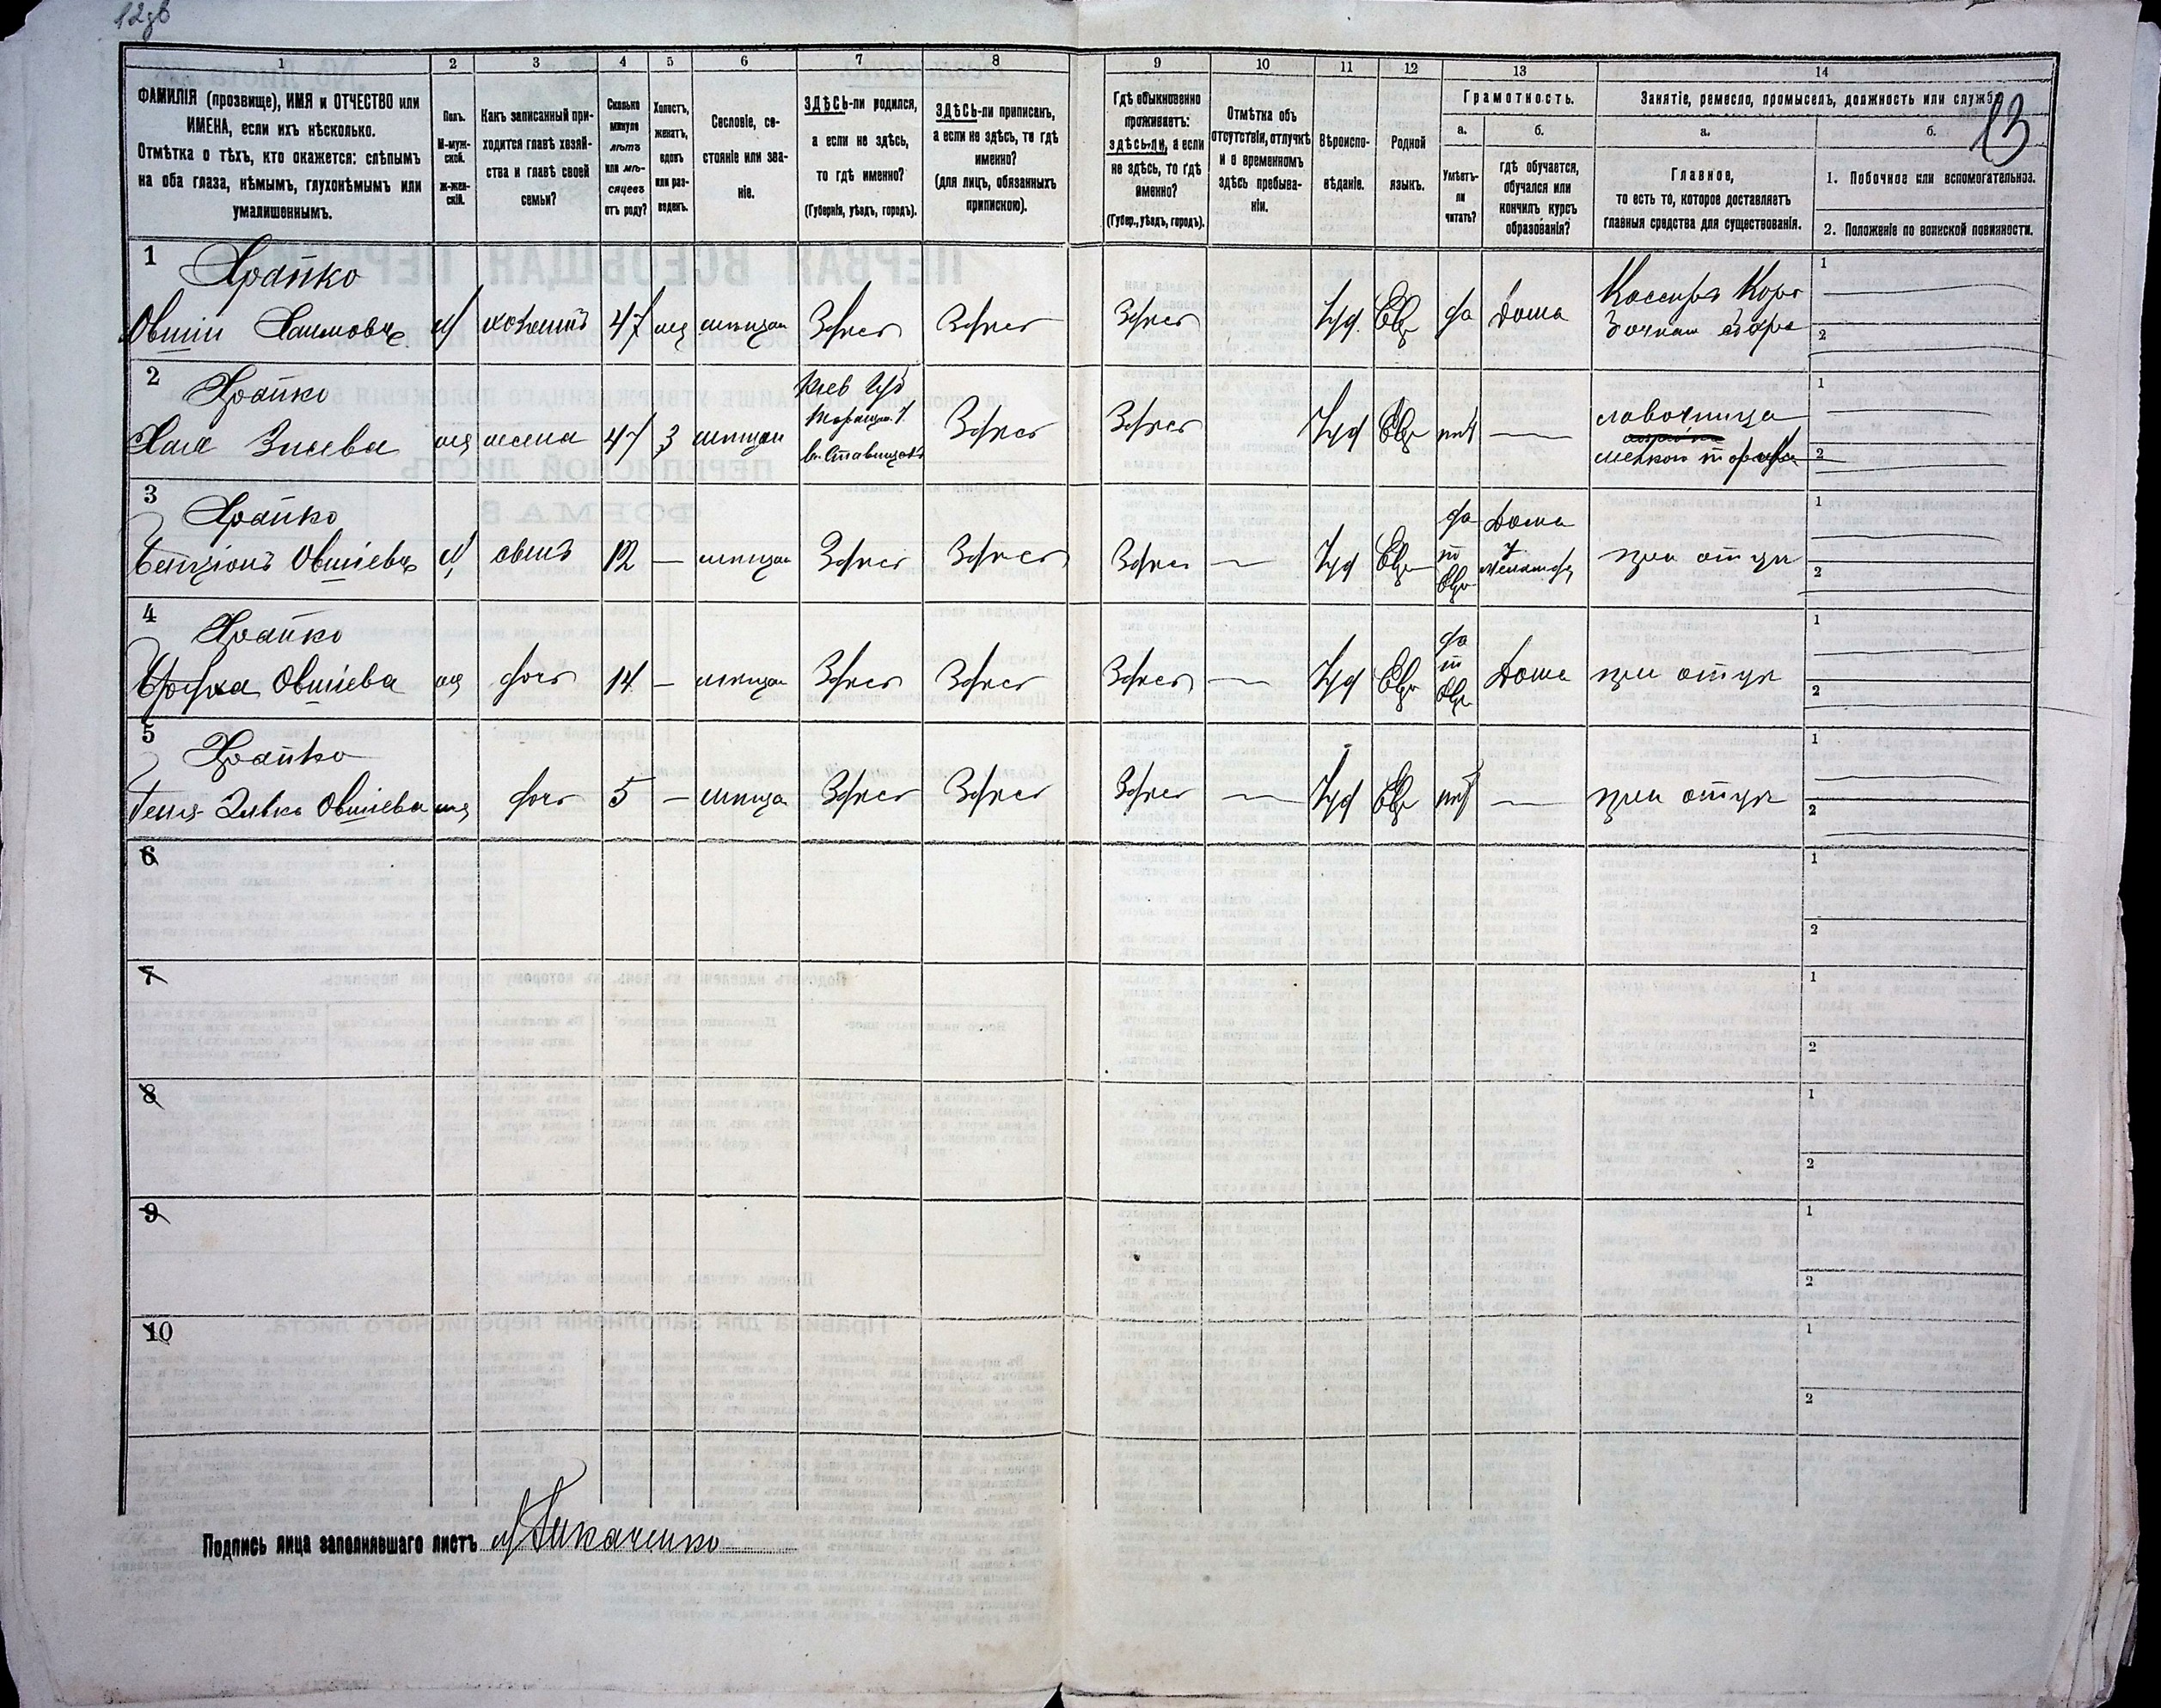 12зв
13
1
2
3
4
5
6
7
8
9
10
11
12
13
14
ФАМИЛІЯ (прозвище), ИМЯ и ОТЧЕСТВО или
ИМЕНА, если ихъ нѣсколько.
Отмѣтка о тѣхъ, кто окажется: слѣпымъ
на оба глаза, нѣмымъ, глухонѣмымъ или
умалишеннымъ.
Полъ.
М-муж-
ской.
ж-жен-
скій.
Какъ записанный при-
ходится главѣ хозяй-
ства и главѣ своей
семьи?
Сколько
минуло
лѣтъ
или мѣ-
сяцевъ
отъ роду?
Холостъ,
женатъ,
вдовъ
или раз-
веденъ.
Сословіе, со-
стояніе или зва-
ніе.
ЗДѢСЬ-ли родился,
а если не здѣсь,
то гдѣ именно?
(Губернія, уѣздъ, городъ).
ЗДѢСЬ-ли приписанъ,
а если не здѣсь, то гдѣ
именно?
(для лицъ, обязанныхъ
припискою).
Гдѣ обыкновенно
проживаетъ:
здѣсь-ли, а если
не здѣсь, то гдѣ
именно?
(Губер., уѣздъ, городъ).
Отмѣтка объ
отсутствіи, отлучкѣ
и о временномъ
здѣсь пребыва-
ніи.
Вѣроиспо-
вѣданіе.
Родной
языкъ.
Грамотность.
а.
б.
Умѣетъ-
ли
читать?
гдѣ обучается,
обучался или
кончилъ курсъ
образованія?
Занятіе, ремесло, промыселъ, должность или служба.
а.
б.
Главное,
то есть то, которое доставляетъ
главныя средства для существованія.
1. Побочное или вспомогательное.
2. Положеніе по воинской повинности.
1
Храпко
Овшій Хаимовъ М хозяинъ 47 ж мѣщан Здѣсь Здѣсь Здѣсь Іуд. Евр да Дома
Кассиръ Коро
бочнаго сбора
1
2
2
Храпко
Хая жена 47 з мѣщан
Киев Губ
Таращан. у.
Здѣсь Здѣсь Іуд Евр нѣт —
лавочница
мелкой торговли
1
2
3
Храпко
Бенціонъ Овшіевъ М сынъ 12 — мѣщан Здѣсь Здѣсь Здѣсь — Іуд Евр
да
по
Евр
Дома
у
Меламеда
при отцѣ
1
2
4
Храпко
Овшіева ж дочь 14 — мѣщан Здѣсь Здѣсь Здѣсь — Іуд Евр
да
по
Евр
Дома при отцѣ
1
2
5
Храпко
Геня Овшіева ж дочь 5 — мѣщан Здѣсь Здѣсь Здѣсь — Іуд Евр нѣт — при отцѣ
1
2
6
1
2
7
1
2
8
1
2
9
1
2
10
1
2
Подпись лица заполнявшаго листъ